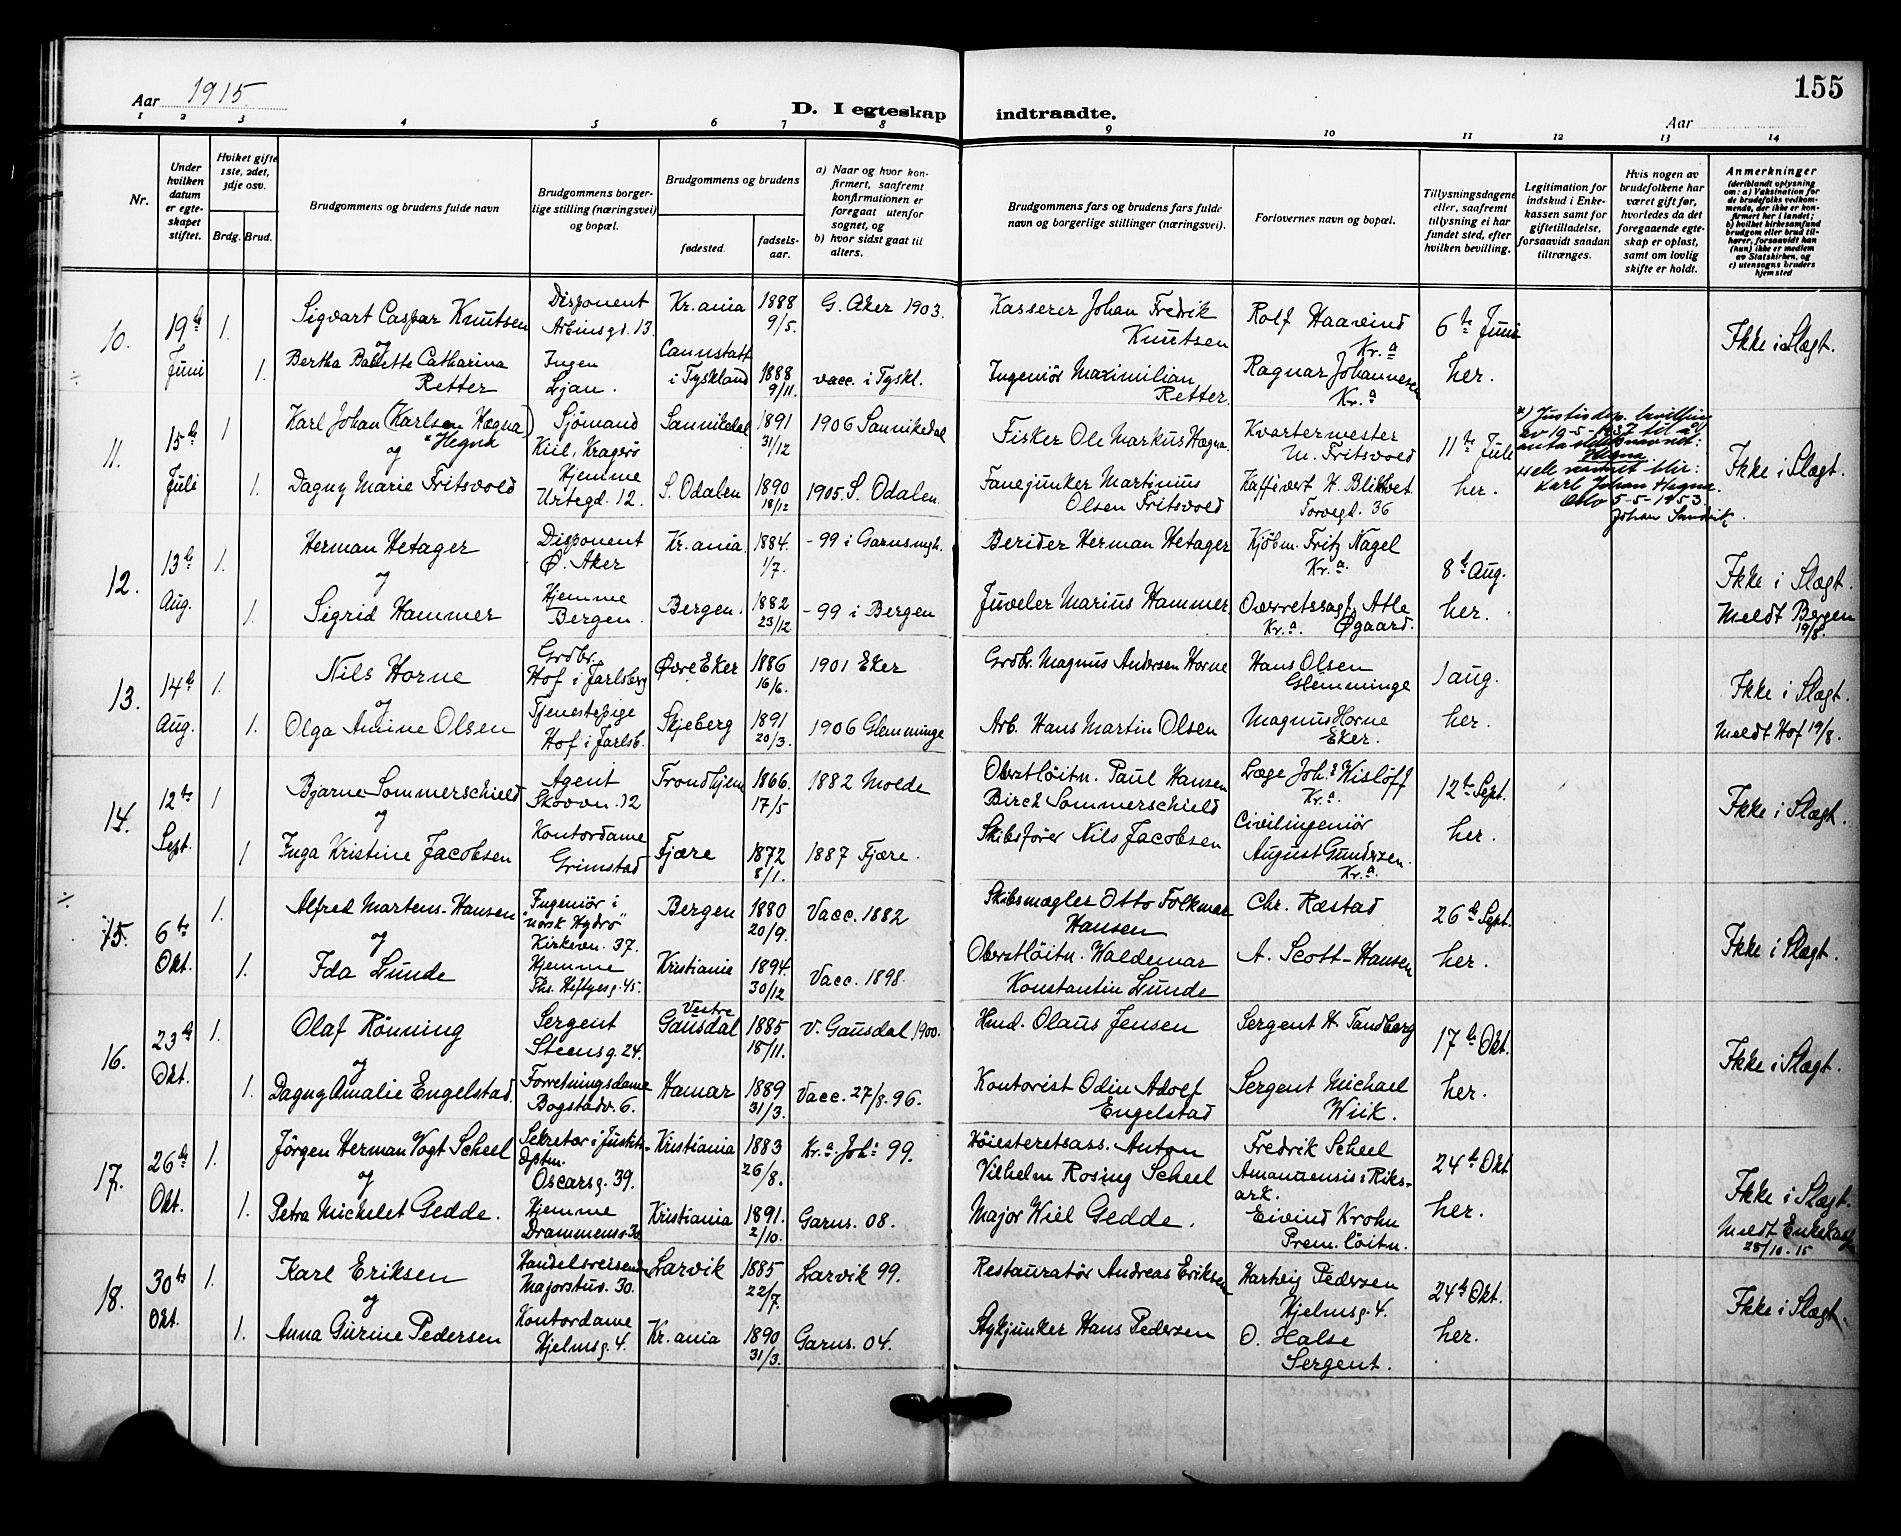 Aar 1915.
D. I egteskap indtraadte.
Aar
155
1 2 3 4 5 6 7 8 9 10 11 12 13 14
Nr.
Under hvilken datum er egteskapet stiftet.
Hvilket gifte 1ste, 2det, 3dje osv.
Brdg. Brud.
Brudgommens og brudens fulde navn
Brudgommens borgerlige stilling (næringsvei) og bopæl.
Brudgommens og brudens
fødested.
fødselsaar.
a) Naar og hvor konfirmert, saafremt konfirmationen er foregaat utenfor sognet, og
b) hvor sidst gaat til alters.
Brudgommens fars og brudens fars fulde navn og borgerlige stillinger (næringsvei).
Forlovernes navn og bopæl.
Tillysningsdagene eller, saafremt tillysning ei har fundet sted, efter hvilken bevilling.
Legitimation for indskud i Enkekassen samt for giftetilladelse, forsaavidt saadan tiltrænges.
Hvis nogen av brudefolkene har været gift før, hvorledes da det foregaaende egteskap er opløst, samt om lovlig skifte er holdt.
Anmerkninger
(deriblandt oplysning om: a) Vaksination for de brudefolks vedkommende, der ikke er konfirmert her i landet; b) hvilket kirkesamfund brudgom eller brud tilhører, forsaavidt han (hun) ikke er medlem av Statskirken, og c) utensogns bruders hjemsted
10. 19de Juni 1. Sigvart Caspar Knutsen Disponent Arbinsgd. 13 Kr.ania 1888 9/5. G. Aker 1903. Kasserer Johan Fredrik Knutsen Rolf Haavind Kr.a 6te Juni Ikke i Slægt.
og
1. Bertha Babette Catharina Retter Ingen Ljan. Cannstatt i Tyskland 1888 9/11. vacc. i Tyskl. Ingeniör Maximilian Retter. Ragnar Johannesen Kr.a her.
11. 15de Juli 1 Karl Johan (Karlsen Hægna) "Hegna Sjömand Kiil, Kragerø Sannikedal 1891 31/12 1906 Sannikedal Fisker Ole Markus Hægna. Kvartermester M. Fritsvold 11te Juli Ikke i Slægt.
og
1. Dagny Marie Fritsvold Hjemme Urtegd. 12. S. Odalen 1890 18/12 1905. S. Odalen. Fanejunker Martinus Olsen Fritsvold Kaffivert H. Torvegd. 36 her.
x) Justisdep. bevilling av 19-5-1937 til å anta slektsnavnet: Hegna
Hele navnet blir: Karl Johan Hegna.
Oslo 5-5-1953
Johan
12. 13de Aug. 1. Herman Hetager Disponent Ø. Aker Kr.ania. 1884. 1/7. -99 i Garns.mgh. Berider Herman Hetager Kjöbm. Fritz Nagel Kr.a. 8de Aug. Ikke i Slægt.
og
1. Sigrid Hammer Hjemme Bergen. Bergen. 1882 23/12. -99 i Bergen Juveler Marius Hammer. Overretssagf. Atle Øgaard. Kr.a. her. Meldt Bergen 19/8.
13. 14de Aug. 1. Nils Horne Grdbr. Hof i Jarlsberg Øvre Eker 1886 16/6. 1901 Eker Grdbr. Magnus Andersen Horne Hans Olsen Glemminge 1 aug. Ikke i Slægt.
og
1. Olga Amine Olsen Tjenestepige Hof i Jarlsb. Skjeberg 1891 20/3. 1906 Glemminge Arb. Hans Martin Olsen Magnus Horne Eker. her. Meldt Hof 19/8.
14. 12te Sept. 1 Bjarne Sommerschield Agent Skovvn. 12 Trondhjem 1866. 17/5 1882 Molde Oberstlöitn. Paul Hansen Birch Sommerschield Læge Johs Wislöff Kr.a. 12te Sept. Ikke i Slægt.
og
1 Inga Kristine Jacobsen Kontordame Grimstad Fjære 1872 8/1. 1887 Fjære. Skibsfører Nils Jacobsen Civilingeniör August Gundersen. Kr.a. her.
15. 6te Okt. 1. Alfred Martens-Hansen Ingeniör i "Norsk Hydro" Kirkevn. 37. Bergen 1880 20/9. Vacc. 1882 Skibsmægler Otto Folkmar Hansen Chr. Ræstad 26de Sept. Ikke i Slægt.
og
1. Ida Lunde Hjemme Ths. Heftyesg. 45. Kristiania 1894. 30/12 Vacc. 1898. Oberstlöitn. Waldemar Konstantin Lunde A. Scott-Hansen her.
16. 23de Okt. 1. Olaf Rönning Sergent Steensg. 24. Vestre Gausdal 1885 18/11. V. Gausdal 1900. Hmd. Olaus Jensen Sergent H. Tandberg 17de Okt. Ikke i Slægt.
og
1. Dagny Amalie Engelstad. Forretningsdame Bogstadv. 6. Hamar 1889 31/3. Vacc. 27/8. 96. Kontorist Odin Adolf Engelstad Sergent Michael Wiik. her.
17. 26de Okt. 1. Jörgen Herman Vogt Scheel Sekretær i Justits-dptm. Oscarsg. 39. Kristiania 1883 26/8. Kr.a Joh: 99. Höiesteretsass. Anton Vilhelm Rosing Scheel Fredrik Scheel Amanuensis i Riks-ark. 24de Okt Ikke i Slægt.
og
1. Petra Michelet Gedde. Hjemme Drammensv. Kristiania 1891. 2/10. Garns. 08. Major Wiel Gedde. Eivind Krohn Prem. löitn. her. Meldt Enkekassen 28/10. 15
18. 30te Okt. 1. Karl Eriksen Handelsreisende Majorstuv. 30. Larvik 1885 22/7. Larvik 99. Restauratör Andreas Eriksen Hartvig Pedersen Hjelmsg. 4. 24de Okt. Ikke i Slægt.
og
1. Anna Gurine Pedersen Kontordame Hjelmsg. 4. Kr.ania 1890 31/3. Garns. 04. Stykjunker Hans Pedersen O. Halse Sergent. her.